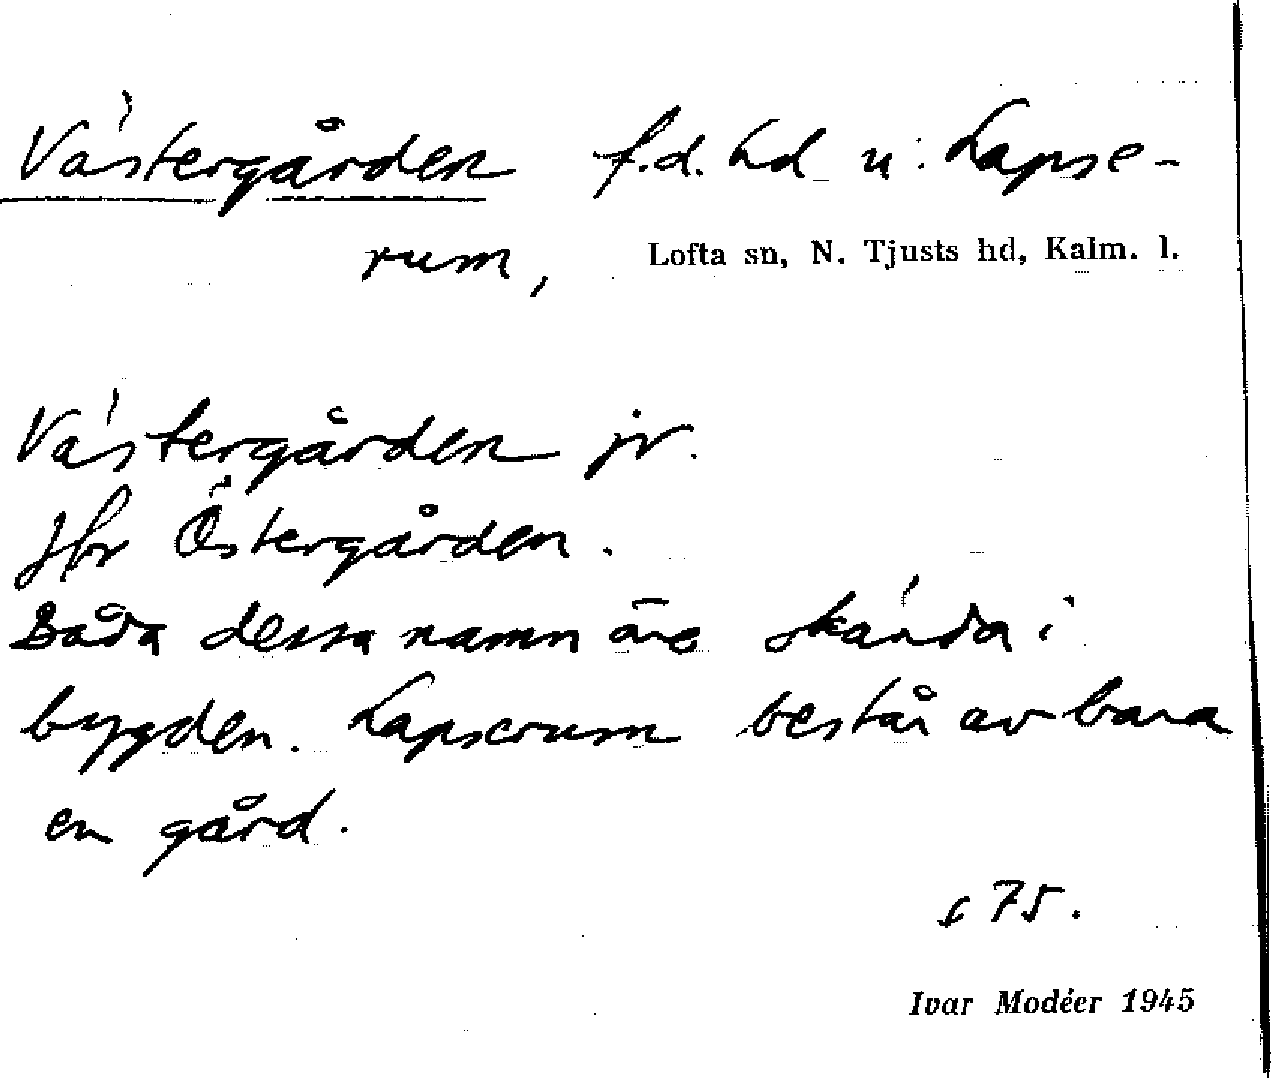 Västergården f.d. hd u. Lapse-
rum, Lofta sn, N. Tjusts hd, Kalm. l.
Västergården jr.
Jfr Östergården.
Båda dessa namn äro kända i
bygden. Lapserum består av bara
en gård.
s 75.
Ivar Modéer 1945